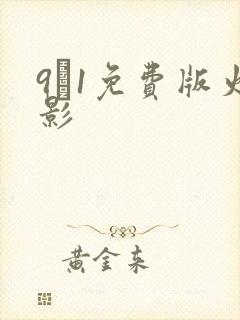 9𝟏1免费版火
影
黄金来